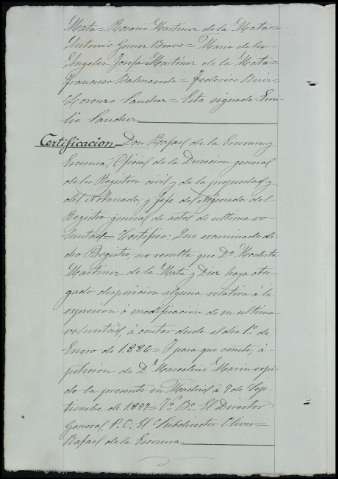 Mata = Rosario Martinez de la Mata =
Antonio Gomez = Maria de los
Angeles Josefa Martinez de la Mata =
Francisco = Federico Ruiz =
Lorenzo Sanchez = Está signado Emi-
lio Sanchez
Certificacion Don Rafael de la Escosura y
Escosura, Oficial de la Direccion general
de los Registros civil y de la propiedad y
del Notariado, y Jefe del Negociado del
Registro general de actos de ultima vo-
luntad = Certifico: Que examinado di-
cho Registro no resulta que Dª Modesta
Martinez de la Mata y Diez haya otor-
gado disposicion alguna relativa á la
expresion ó modificacion de su ultima
voluntad, á contar desde el dia 1º de
Enero de 1886 = Y para que conste, á
peticion de Dº Marcelino Marin expi-
do la presente en Madrid á 9 de Sep-
tiembre de 1899 = Vº Bº El Director
General P.O. El Subdirector Oliver =
Rafael de la Escosura